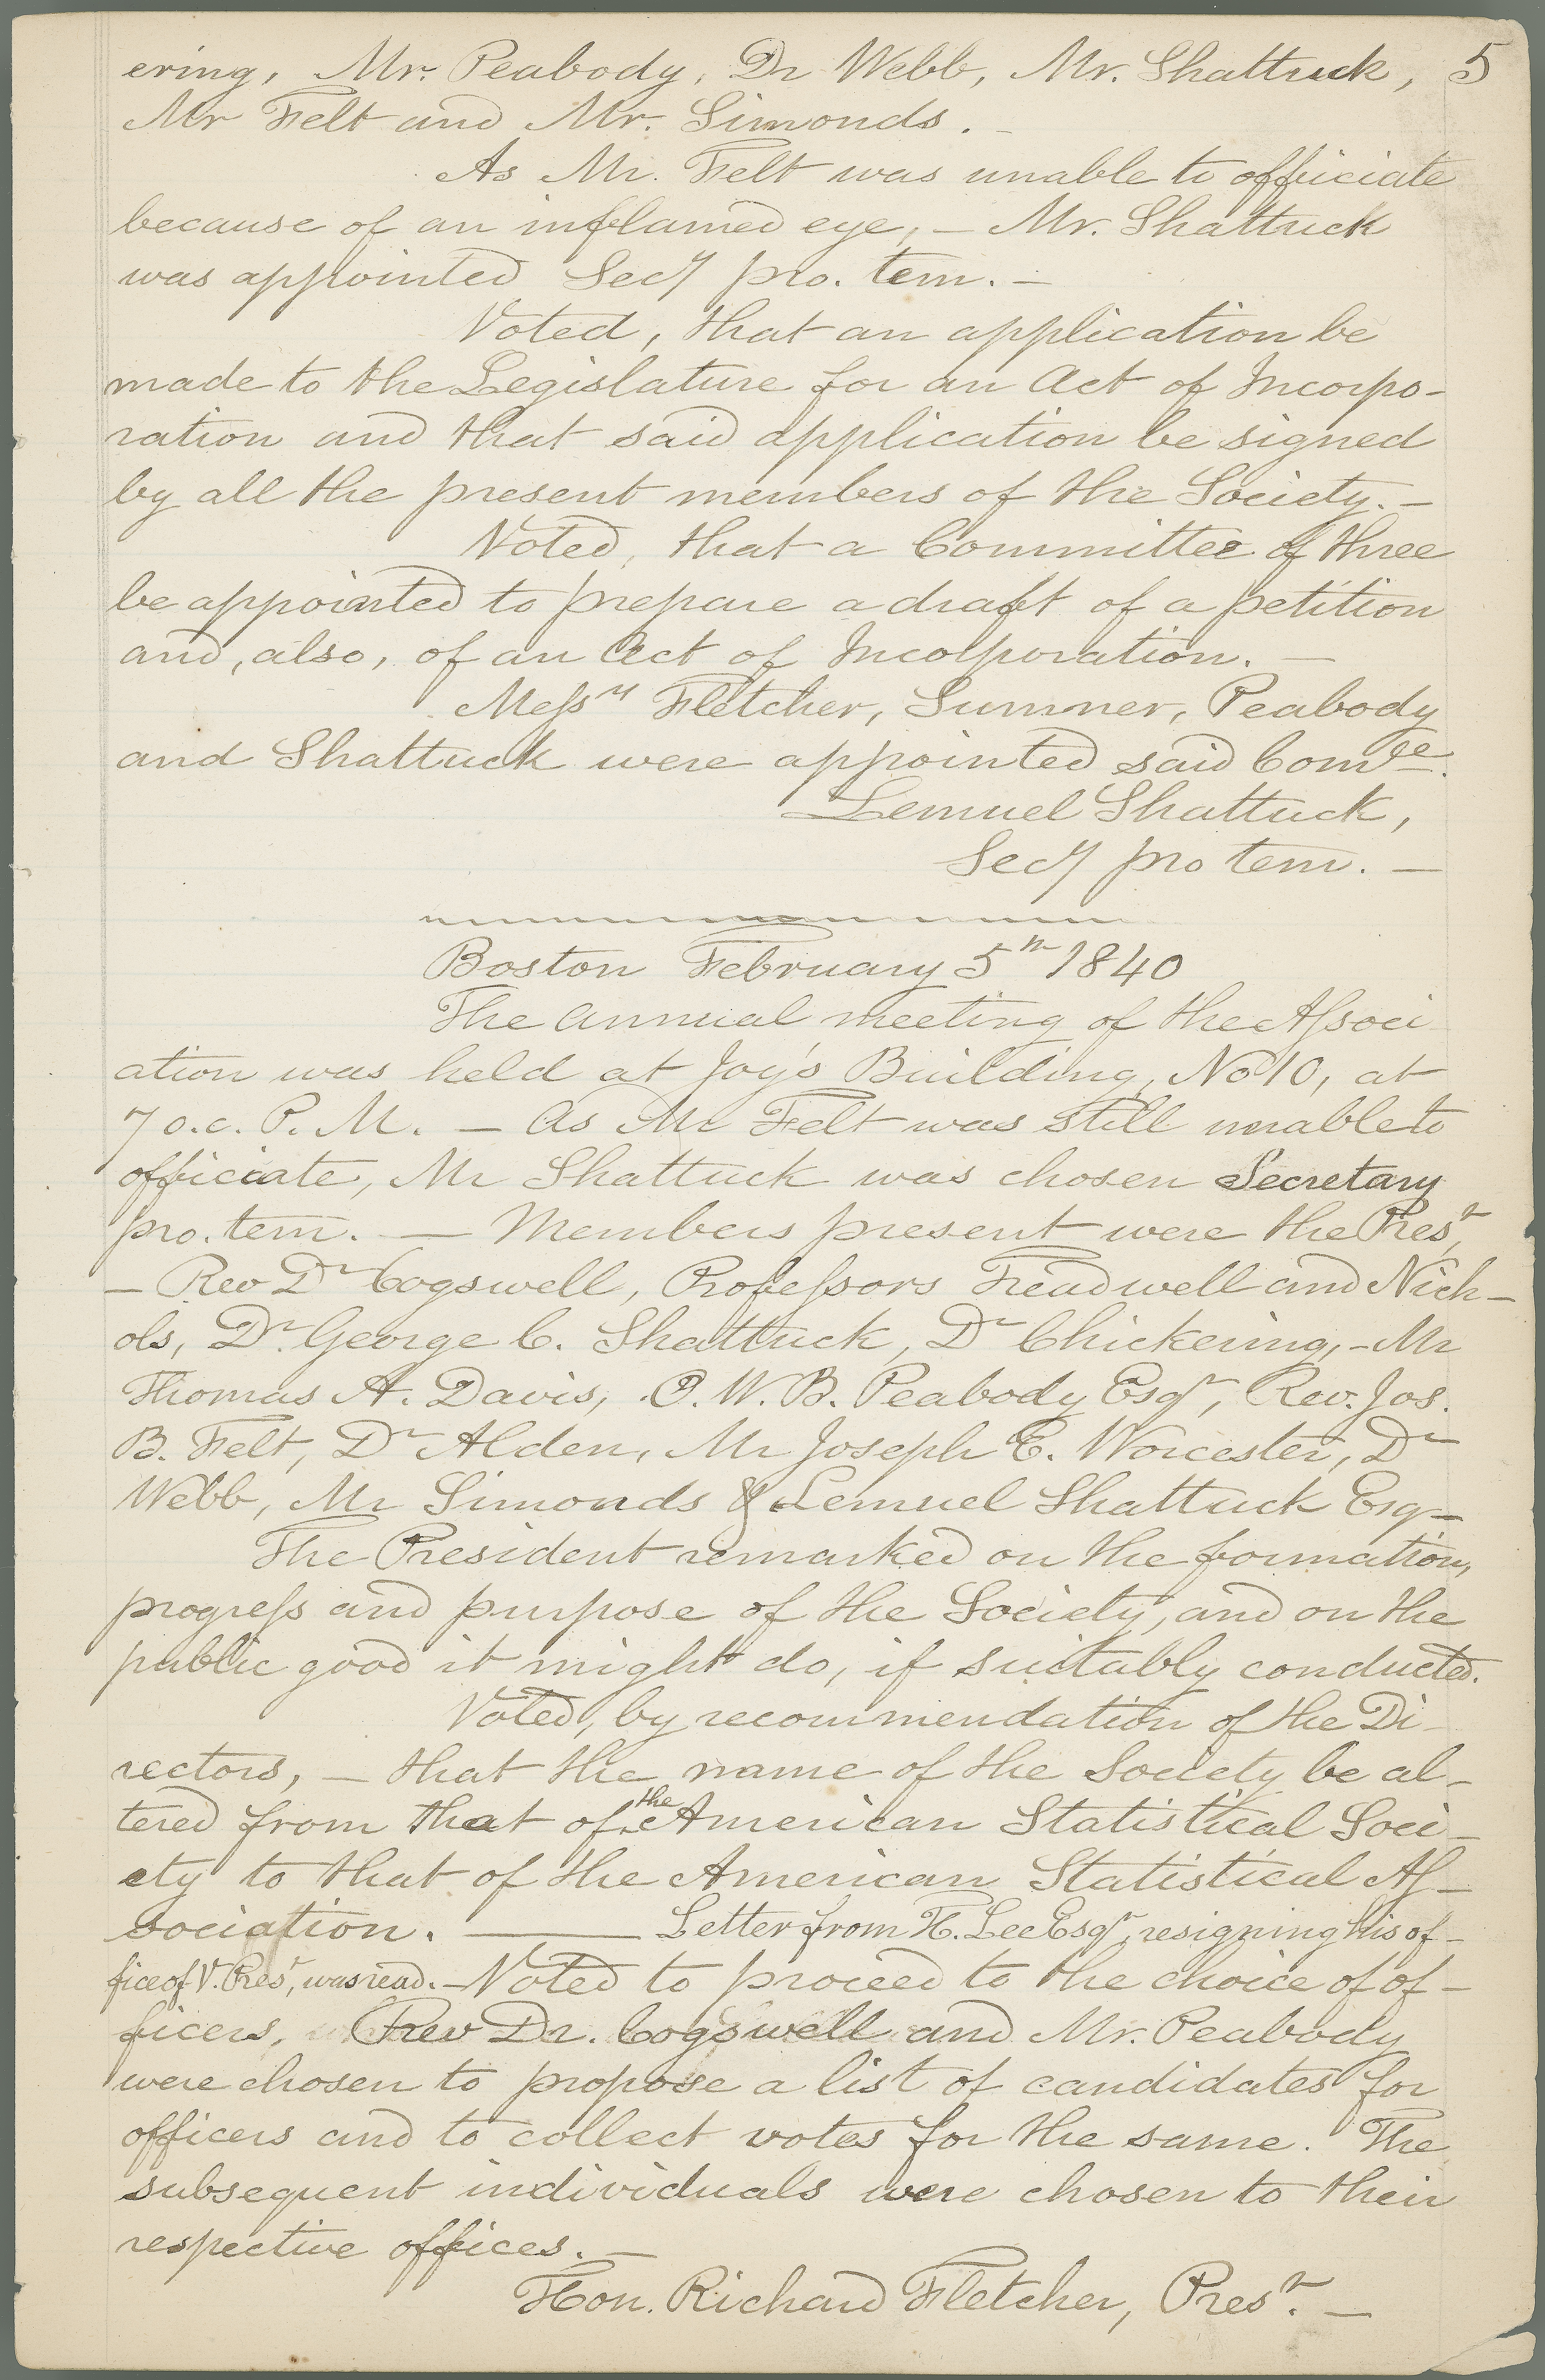 ering, Mr. Peabody, Dr Webb, Mr. Shattuck, 5
Mr Felt and Mr. Simonds. -
As Mr. Felt was unable to officiate
because of an inflamed eye, - Mr. Shattuck
was appointed Secy pro. tem. -
Voted, that an application be
made to the Legislature for an Act of Incorpo-
ration and that said application be signed
by all the present members of the Society. -
Voted, that a Committee of three
be appointed to prepare a draft of a petition
and, also, of an Act of Incorporation. -
Messrs Fletcher, Sumner, Peabody
and Shattuck were appointed said Comtee.
Lemuel Shattuck,
Secy pro tem. -
Boston February 5th 1840
The annual meeting of the Associ
ation was held at Joy's Building, No 10, at
7 o.c. P. M. - As Mr Felt was still unable to
officiate, Mr Shattuck was chosen Secretary
pro. tem. - Members present were the Prest,
- Rev Dr Cogswell, Professors Treadwell and Nich-
ols, Dr George C. Shattuck, Dr Chickering, - Mr
Thomas A. Davis, O. W. B. Peabody Esqr, Rev. Jos.
B. Felt, Dr Alden, Mr Joseph E. Worcester, Dr
Webb, Mr Simonds & Lemuel Shattuck Esq -
The President remarked on the formation,
progress and purpose of the Society, and on the
public good it might do, if suitably conducted.
Voted, by recommendation of the Di-
rectors, - that the name of the Society be al-
tered from that of the American Statistical Soci-
ety to that of the American Statistical As-
sociation. - Letter from H. Lee Esqr, resigning his of-
fice of V. Prest, was read. - Voted to proceed to the choice of of-
ficers, Rev Dr. Cogswell and Mr. Peabody
were chosen to propose a list of candidates for
officers and to collect votes for the same. The
subsequent individuals were chosen to their
respective offices. -
Hon. Richard Fletcher, Prest. -